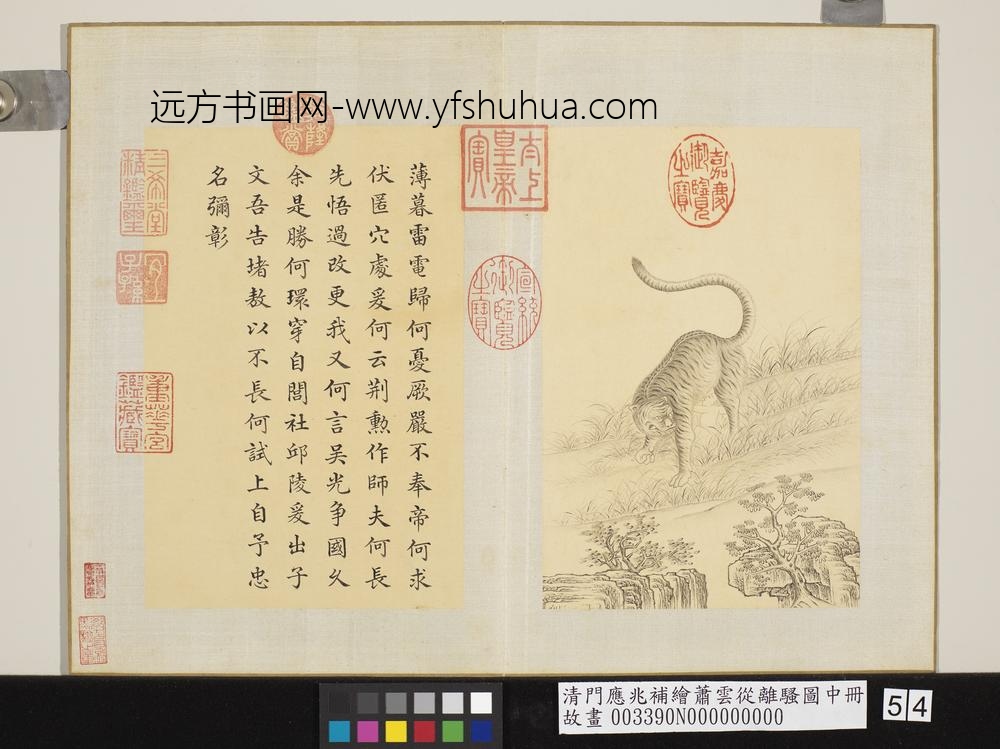 远方书画网-www.yfshuhua.com
薄暮雷電歸何憂厥嚴不奉帝何求
伏匿穴處爰何云荆勲作師夫何長
先悟過改更我又何言吴光争國久
余是勝何環穿自閭社邱陵爰出子
文吾告堵敖以不長何試上自予忠
名彌彰
太上皇帝之寶
嘉慶御覽之寶
宣統御覽之寶
三希堂精鑑璽
宜子孫
重華宮鑑藏寶
清門應兆補繪蕭雲從離騷圖中冊
故畫 003390N000000000
54